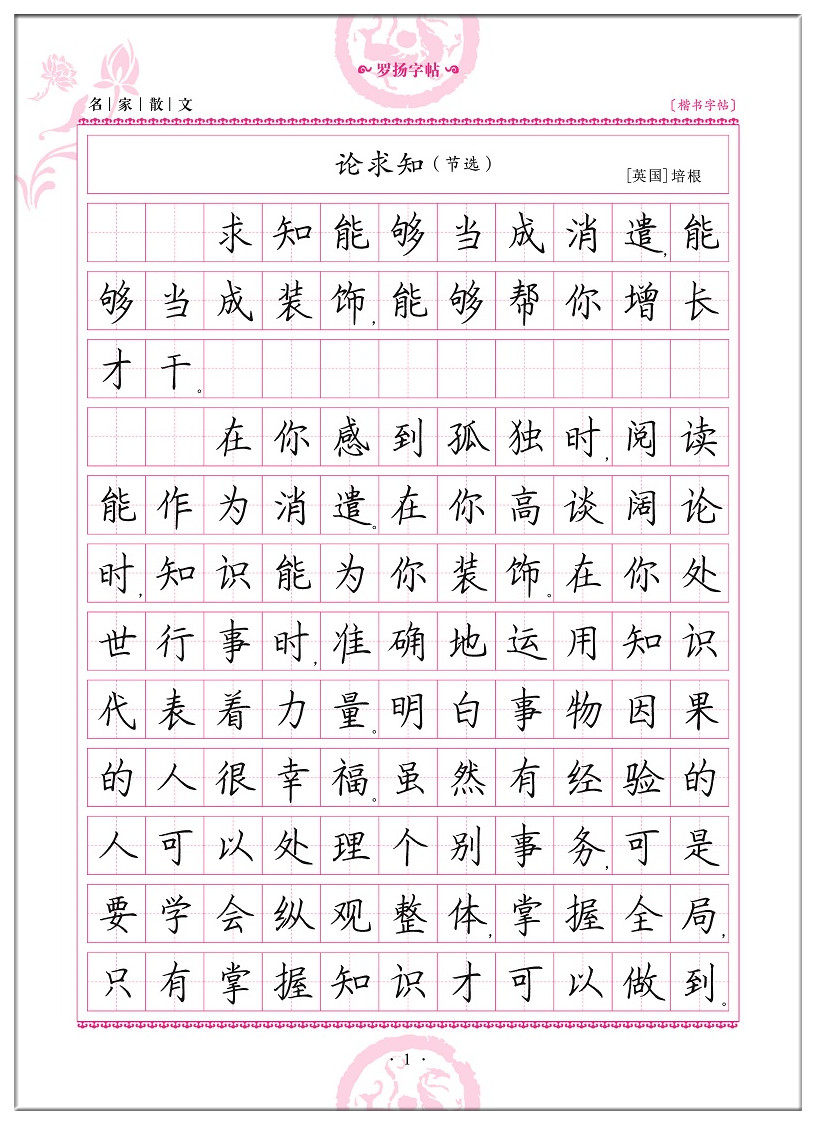 罗扬字帖
名家散文
〔楷书字帖〕
论求知(节选)
[英国]培根
求知能够当成消遣,能
够当成装饰,能够帮你增长
才干。
在你感到孤独时,阅读
能作为消遣。在你高谈阔论
时,知识能为你装饰。在你处
世行事时,准确地运用知识
代表着力量。明白事物因果
的人很幸福。虽然有经验的
人可以处理个别事务,可是
要学会纵观整体,掌握全局,
只有掌握知识才可以做到。
· 1 ·